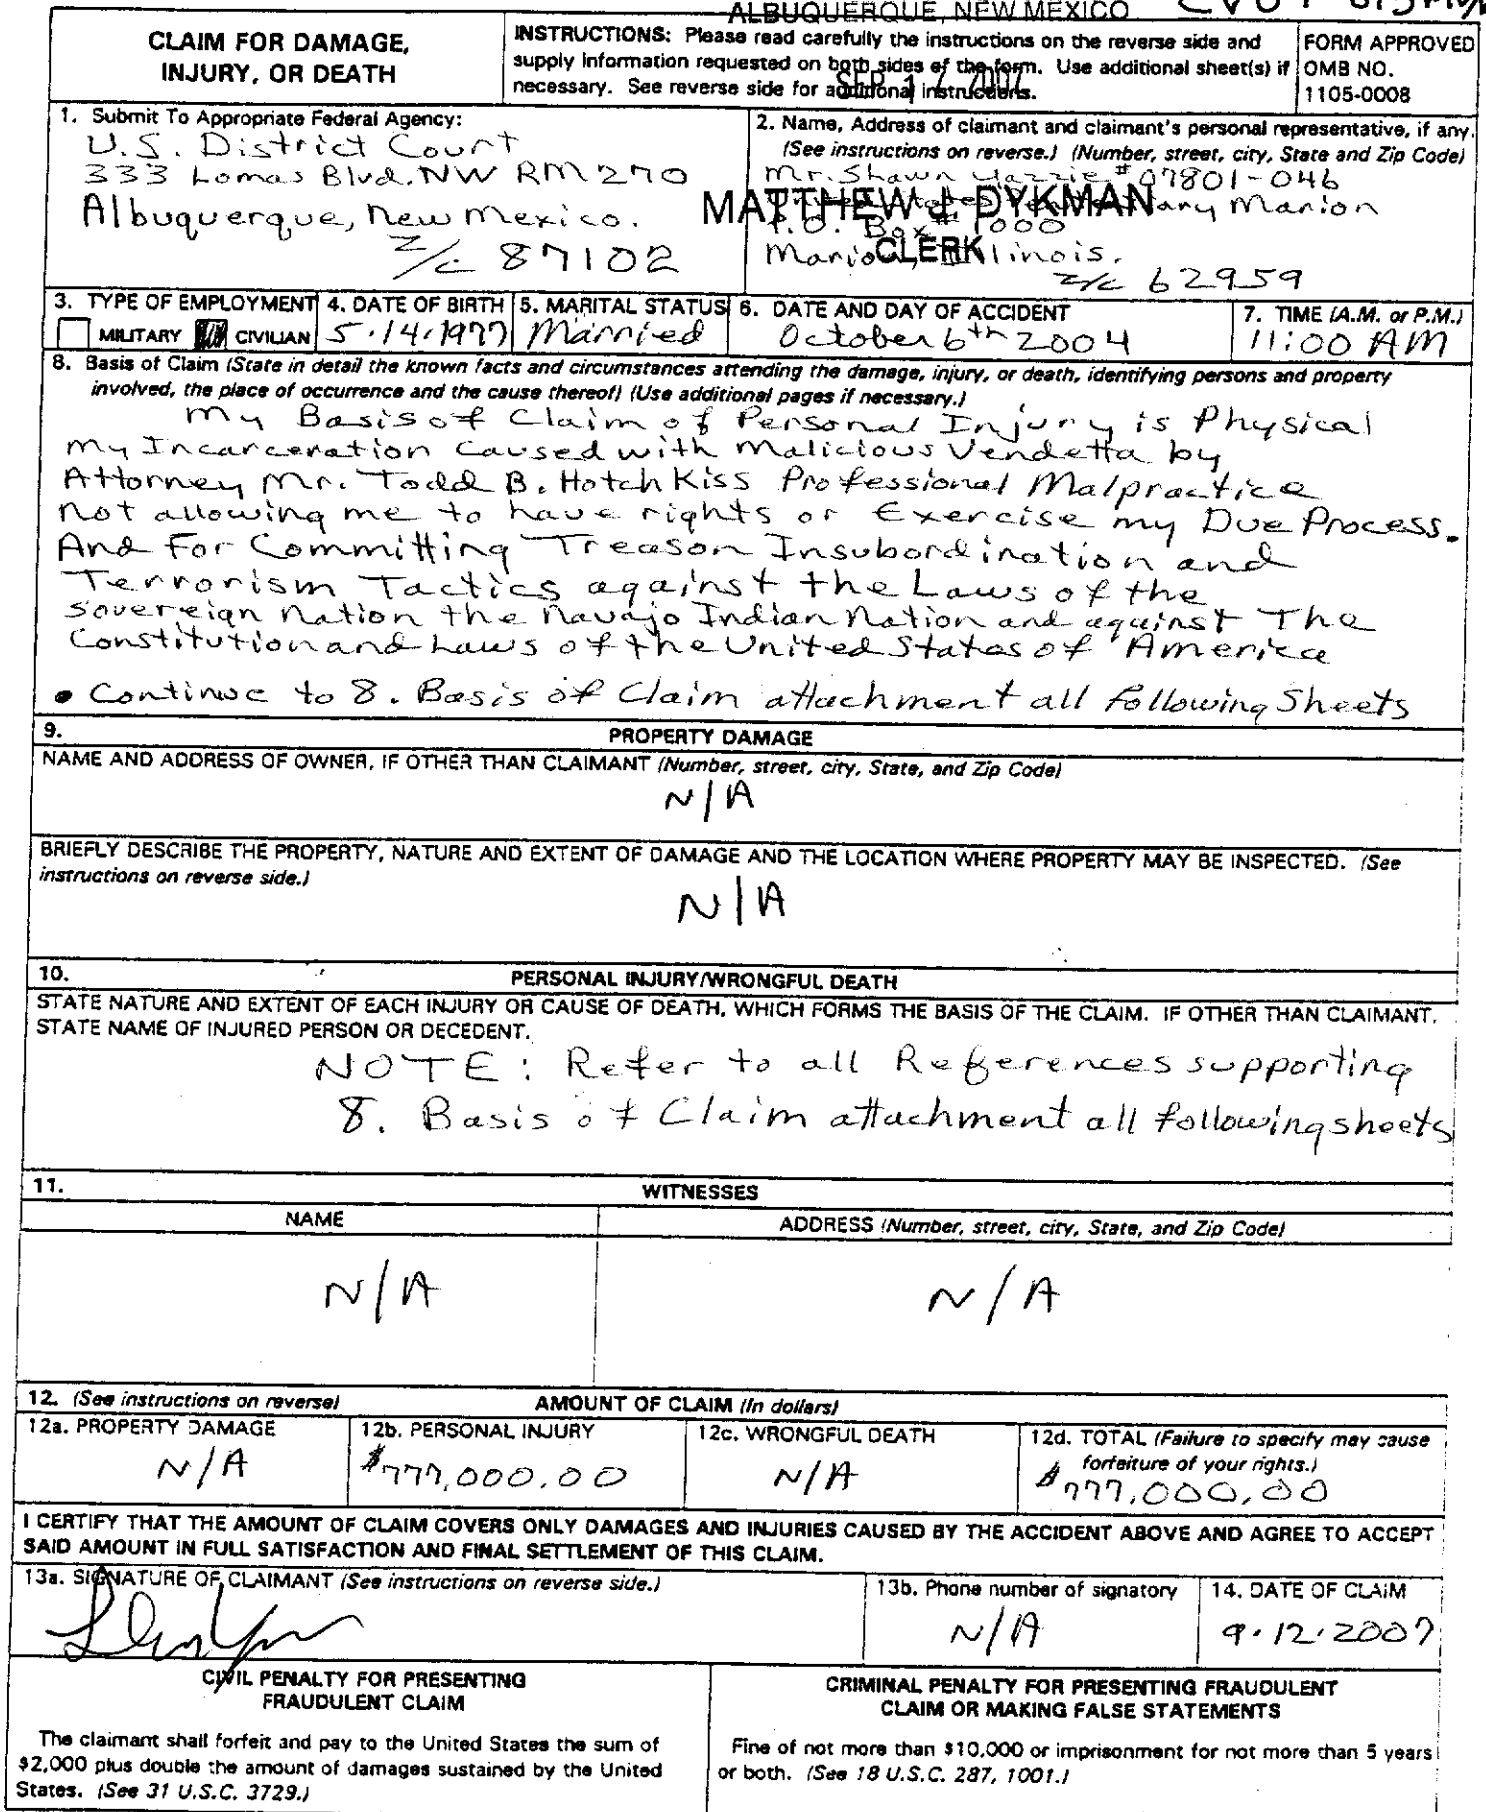 ALBUQUERQUE, NEW MEXICO
CLAIM FOR DAMAGE,
INJURY, OR DEATH
INSTRUCTIONS: Please read carefully the instructions on the reverse side and
supply information requested on both sides of the form. Use additional sheet(s) if
necessary. See reverse side for additional instructions.
SEP 17 2007
FORM APPROVED
OMB NO.
1105-0008
1. Submit To Appropriate Federal Agency:
U.S. District Court
333 Lomas Blvd. NW RM 270
Albuquerque, new mexico.
z/c 87102
2. Name, Address of claimant and claimant's personal representative, if any.
(See instructions on reverse.) (Number, street, city, State and Zip Code)
Mr. Shawn Yazzie #07801-046
Marion
P.O. Box # 1000
Marion, Illinois.
z/c 62959
MATTHEW J. DYKMAN
CLERK
3. TYPE OF EMPLOYMENT
MILITARY CIVILIAN
4. DATE OF BIRTH
5.14.1977
5. MARITAL STATUS
Married
6. DATE AND DAY OF ACCIDENT
October 6th 2004
7. TIME (A.M. or P.M.)
11:00 AM
8. Basis of Claim (State in detail the known facts and circumstances attending the damage, injury, or death, identifying persons and property
involved, the place of occurrence and the cause thereof) (Use additional pages if necessary.)
My Basis of Claim of Personal Injury is Physical
my Incarceration Caused with Malicious Vendetta by
Attorney Mr. Todd B. HotchKiss Professional Malpractice
not allowing me to have rights or Exercise my Due Process.
And For Committing Treason Insubordination and
Terrorism Tactics against the Laws of the
sovereign nation the Navajo Indian Nation and against The
Constitution and Laws of the United States of America
• Continue to 8. Basis of Claim attachment all following Sheets
9. PROPERTY DAMAGE
NAME AND ADDRESS OF OWNER, IF OTHER THAN CLAIMANT (Number, street, city, State, and Zip Code)
N/A
BRIEFLY DESCRIBE THE PROPERTY, NATURE AND EXTENT OF DAMAGE AND THE LOCATION WHERE PROPERTY MAY BE INSPECTED. (See
instructions on reverse side.)
N/A
10. PERSONAL INJURY/WRONGFUL DEATH
STATE NATURE AND EXTENT OF EACH INJURY OR CAUSE OF DEATH, WHICH FORMS THE BASIS OF THE CLAIM. IF OTHER THAN CLAIMANT,
STATE NAME OF INJURED PERSON OR DECEDENT.
NOTE: Refer to all References supporting
8. Basis of Claim attachment all following sheets
11. WITNESSES
NAME
ADDRESS (Number, street, city, State, and Zip Code)
N/A
N/A
12. (See instructions on reverse) AMOUNT OF CLAIM (In dollars)
12a. PROPERTY DAMAGE
N/A
12b. PERSONAL INJURY
$777,000.00
12c. WRONGFUL DEATH
N/A
12d. TOTAL (Failure to specify may cause
forfeiture of your rights.)
$777,000.00
I CERTIFY THAT THE AMOUNT OF CLAIM COVERS ONLY DAMAGES AND INJURIES CAUSED BY THE ACCIDENT ABOVE AND AGREE TO ACCEPT
SAID AMOUNT IN FULL SATISFACTION AND FINAL SETTLEMENT OF THIS CLAIM.
13a. SIGNATURE OF CLAIMANT (See instructions on reverse side.)
13b. Phone number of signatory
N/A
14. DATE OF CLAIM
9.12.2007
CIVIL PENALTY FOR PRESENTING
FRAUDULENT CLAIM
The claimant shall forfeit and pay to the United States the sum of
$2,000 plus double the amount of damages sustained by the United
States. (See 31 U.S.C. 3729.)
CRIMINAL PENALTY FOR PRESENTING FRAUDULENT
CLAIM OR MAKING FALSE STATEMENTS
Fine of not more than $10,000 or imprisonment for not more than 5 years
or both. (See 18 U.S.C. 287, 1001.)